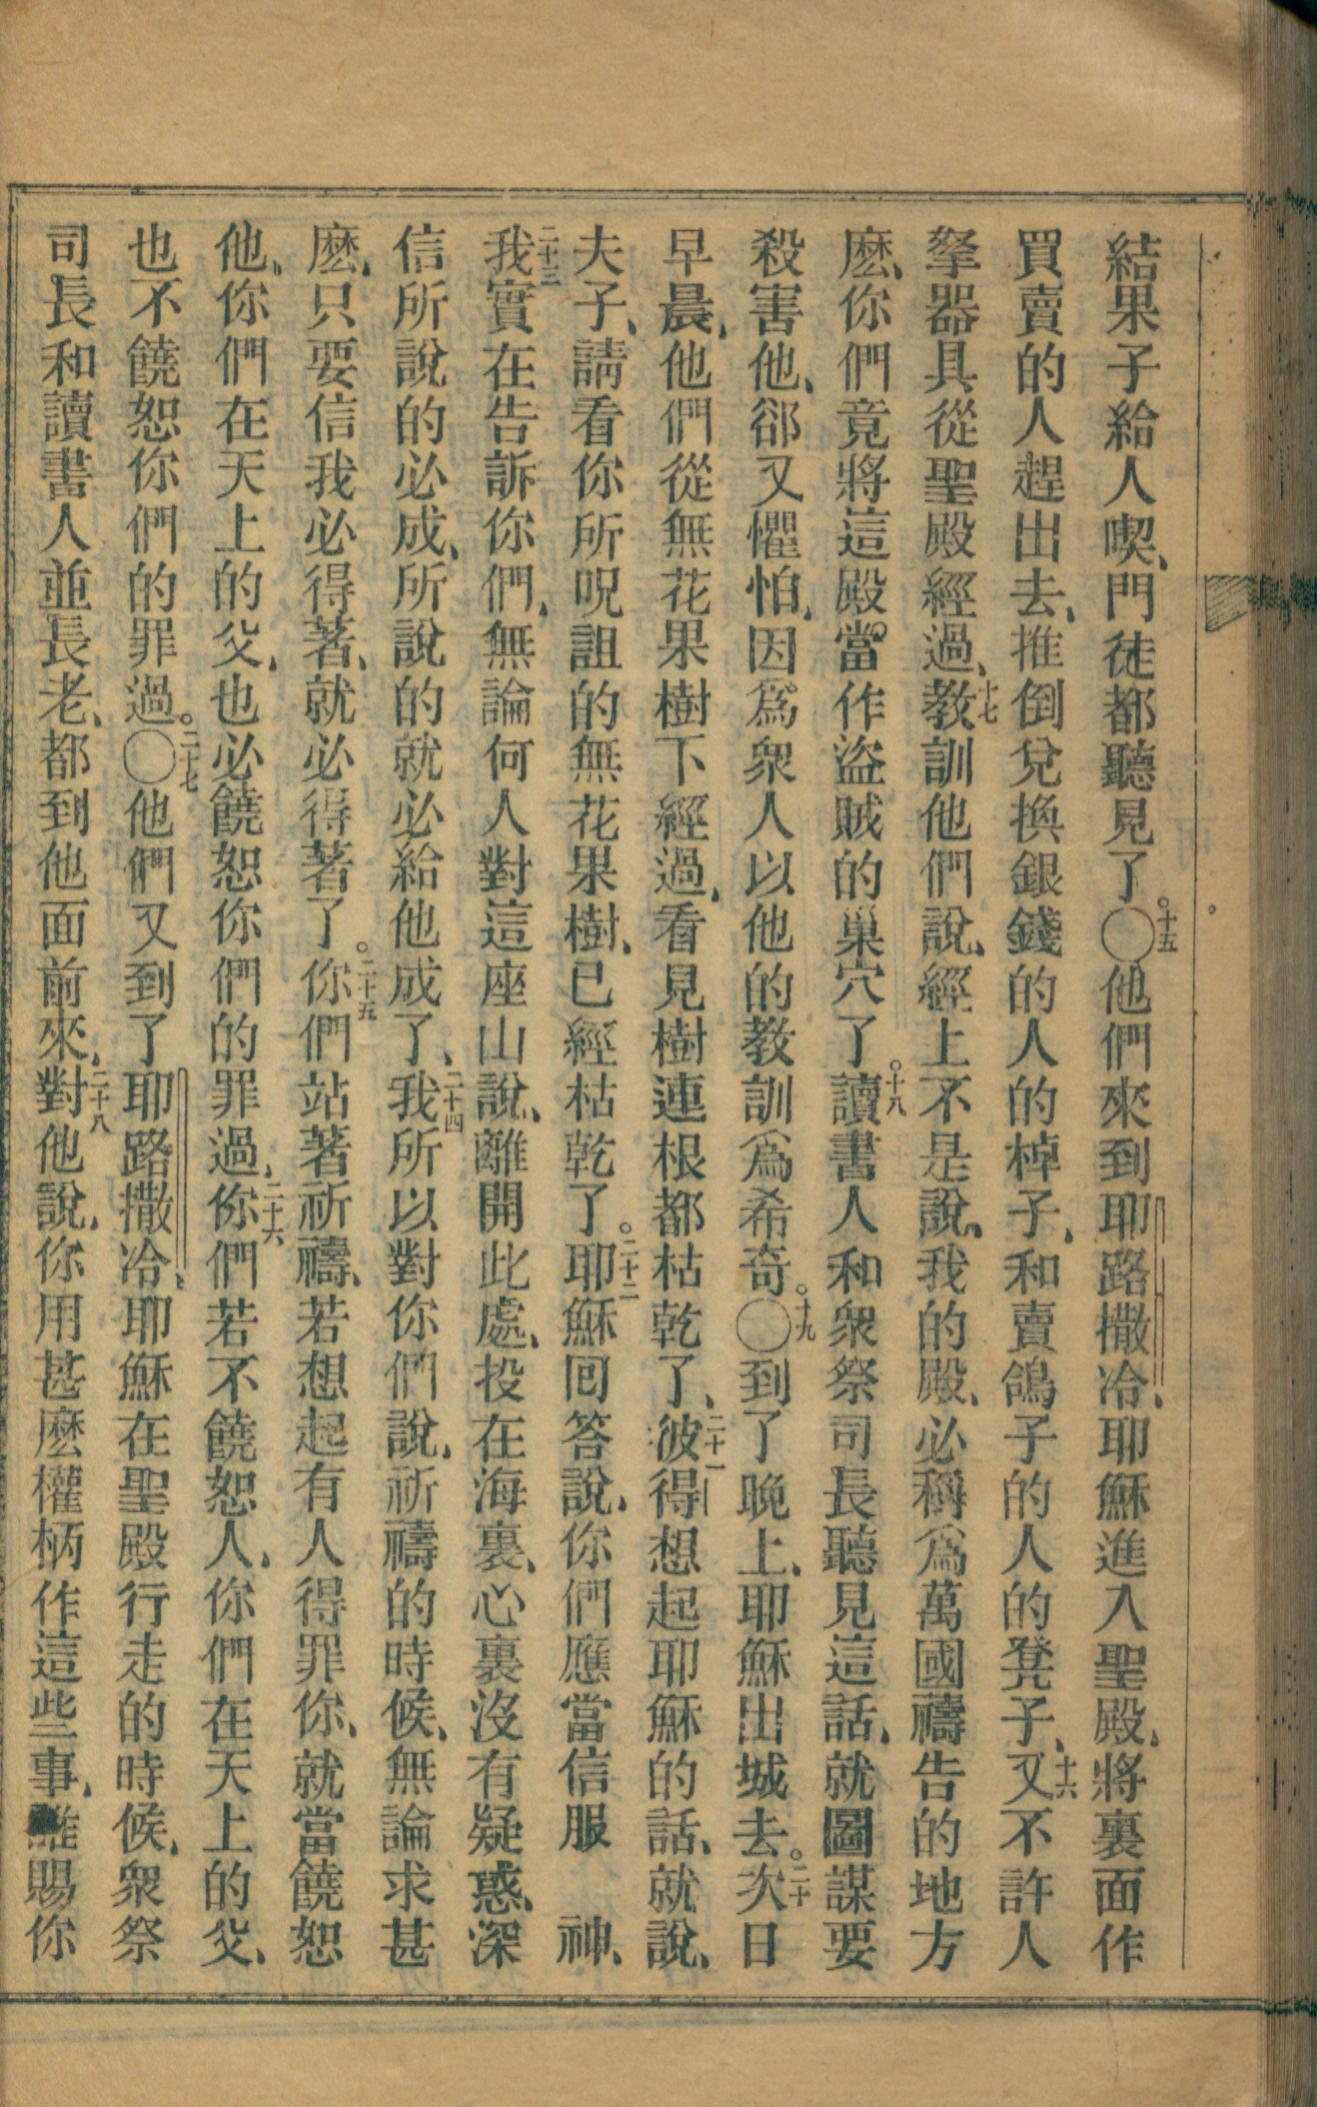 結果子給人喫、門徒都聽見了。〇十五他們來到耶路撒冷、耶穌進入聖殿、將裏面作
買賣的人趕出去、推倒兌換銀錢的人的棹子、和賣鴿子的人的凳子、十六又不許人
拏器具從聖殿經過、十七教訓他們說、經上不是說、我的殿、必稱爲萬國禱告的地方
麽、你們竟將這殿當作盜賊的巢穴了。十八讀書人和衆祭司長聽見這話、就圖謀要
殺害他、郤又懼怕、因爲衆人以他的教訓爲希奇。〇十九到了晚上、耶穌出城去。二十次日
早晨、他們從無花果樹下經過、看見樹連根都枯乾了、二十一彼得想起耶穌的話、就說、
夫子、請看你所呪詛的無花果樹、已經枯乾了。二十二耶穌回答說、你們應當信服　神、
二十三我實在告訴你們、無論何人對這座山說、離開此處、投在海裏、心裏沒有疑惑、深
信所說的必成、所說的就必給他成了、二十四我所以對你們說、祈禱的時候、無論求甚
麽、只要信我必得著、就必得著了。二十五你們站著祈禱、若想起有人得罪你、就當饒恕
他、你們在天上的父、也必饒恕你們的罪過、二十六你們若不饒恕人、你們在天上的父、
也不饒恕你們的罪過。〇二十七他們又到了耶路撒冷、耶穌在聖殿行走的時候、衆祭
司長和讀書人並長老、都到他面前來、二十八對他說、你用甚麽權柄作這些事、誰賜你